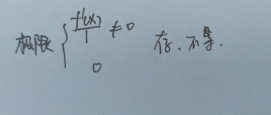 极限 { f'(x)/1 ≠ 0 存、不
0